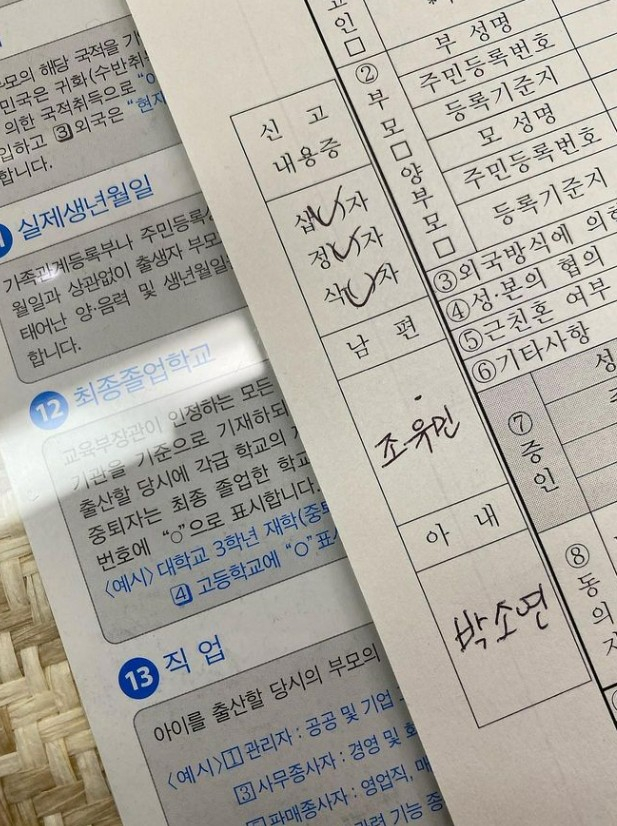 모의 해당 국적을 기
민국은 귀화(수반취
의한 국적취득으로
입하고 ③외국은 "현지
합니다.
실제생년월일
가족관계등록부나 주민등록
월일과 상관없이 출생자 부모
태어난 양·음력 및 생년월일
합니다.
12 최종졸업학교
교육부장관이 인정하는 모든
기관을 기준으로 기재하되
출산할 당시에 각급 학교의
중퇴자는 최종 졸업한 학교
번호에 "○"으로 표시합니다.
〈예시〉 대학교 3학년 재학(중퇴
④ 고등학교에 "○"표
13 직업
아이를 출산할 당시의 부모의
〈예시〉 ① 관리자 : 공공 및 기업
③ 사무종사자 : 경영 및 회
⑤ 판매종사자 : 영업직, 매
관련 기능 종
신 고
내용증
삽 자
정 자
삭 자
남 편
조유민
아 내
박소연
인□
② 부모□양부모□
부 성명
주민등록번호
등록기준지
모 성명
주민등록번호
등록기준지
③외국방식에 의한
④성·본의 협의
⑤근친혼 여부
⑥기타사항
⑦ 증인
성
주
⑧ 동의자